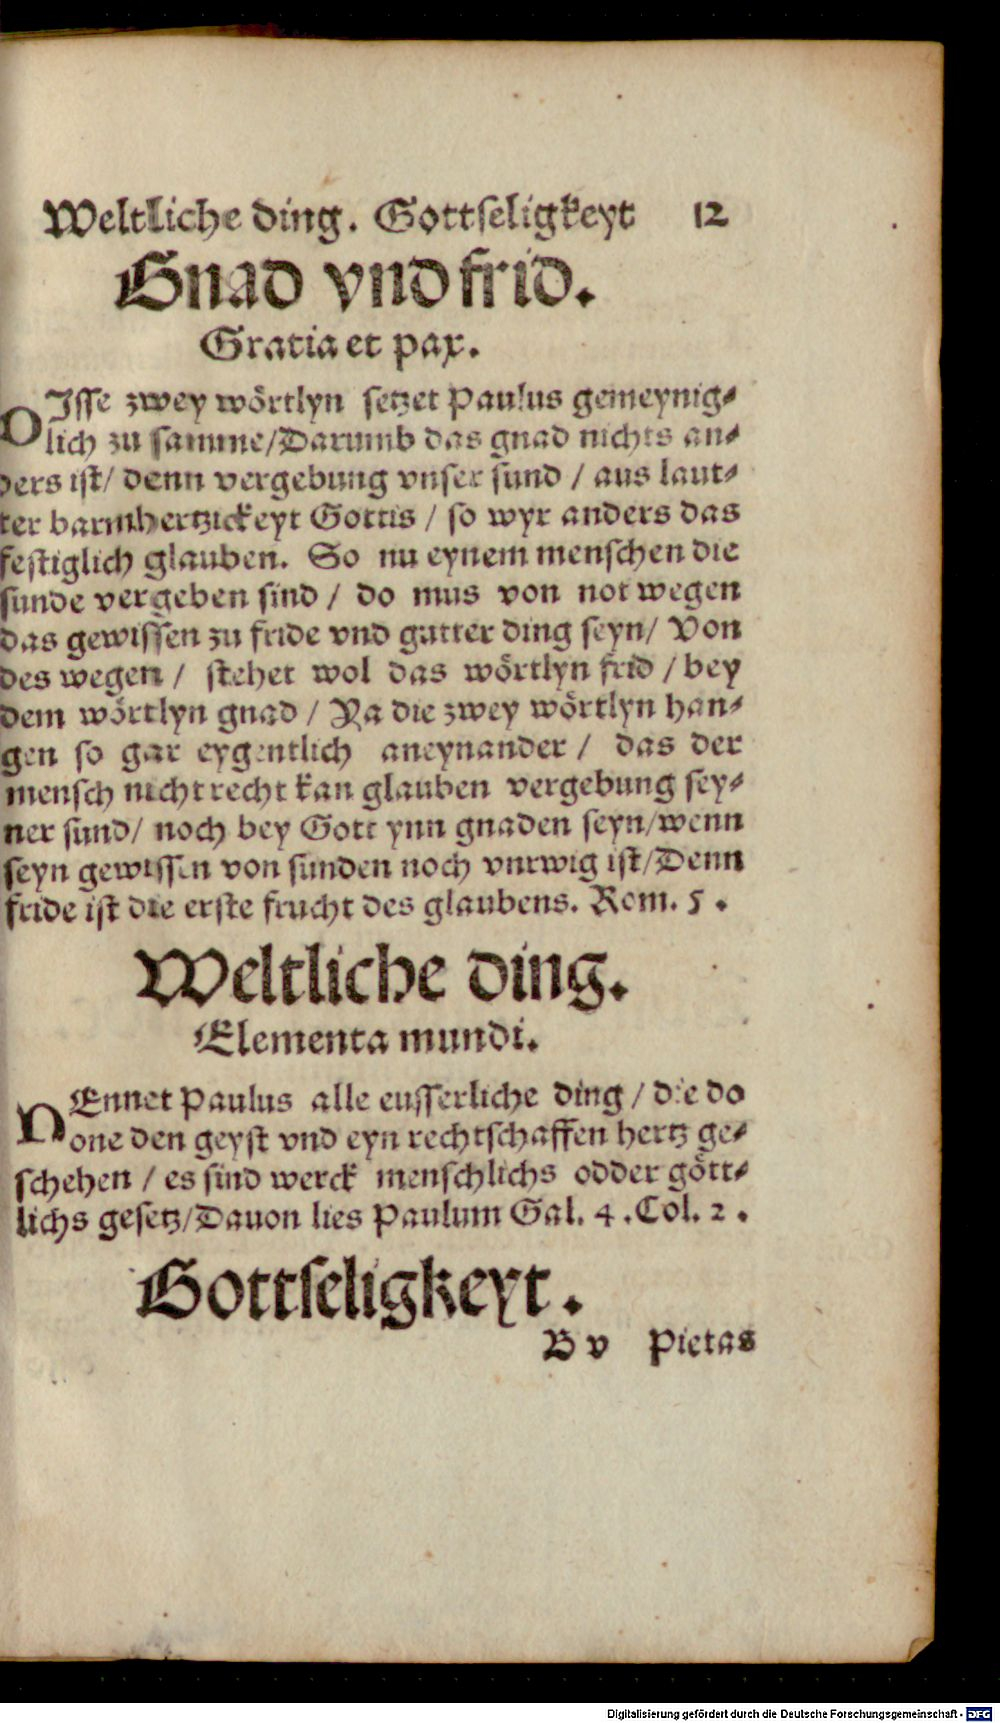 Weltliche ding. Gottseligkeyt 12
Gnad vnd frid.
Gratia et pax.
DIsse zwey wörtlyn setzet Paulus gemeynig-
lich zu samme/Darumb das gnad nichts an-
ders ist/ denn vergebung vnser sund / aus laut-
ter barmhertzickeyt Gottis / so wyr anders das
festiglich glauben. So nu eynem menschen die
sunde vergeben sind / do mus von not wegen
das gewissen zu fride vnd gutter ding seyn/ Von
des wegen / stehet wol das wörtlyn frid / bey
dem wörtlyn gnad / Ya die zwey wörtlyn han-
gen so gar eygentlich aneynander / das der
mensch nicht recht kan glauben vergebung sey-
ner sund/ noch bey Gott ynn gnaden seyn/wenn
seyn gewissen von sunden noch vnrwig ist/Denn
fride ist die erste frucht des glaubens. Rom. 5 .
Weltliche ding.
Elementa mundi.
NEnnet Paulus alle eusserliche ding / die do
one den geyst vnd eyn rechtschaffen hertz ge-
schehen / es sind werck menschlichs odder gött-
lichs gesetz/Dauon lies Paulum Gal. 4 .Col. 2 .
Gottseligkeyt.
B v Pietas
Digitalisierung gefördert durch die Deutsche Forschungsgemeinschaft - DFG